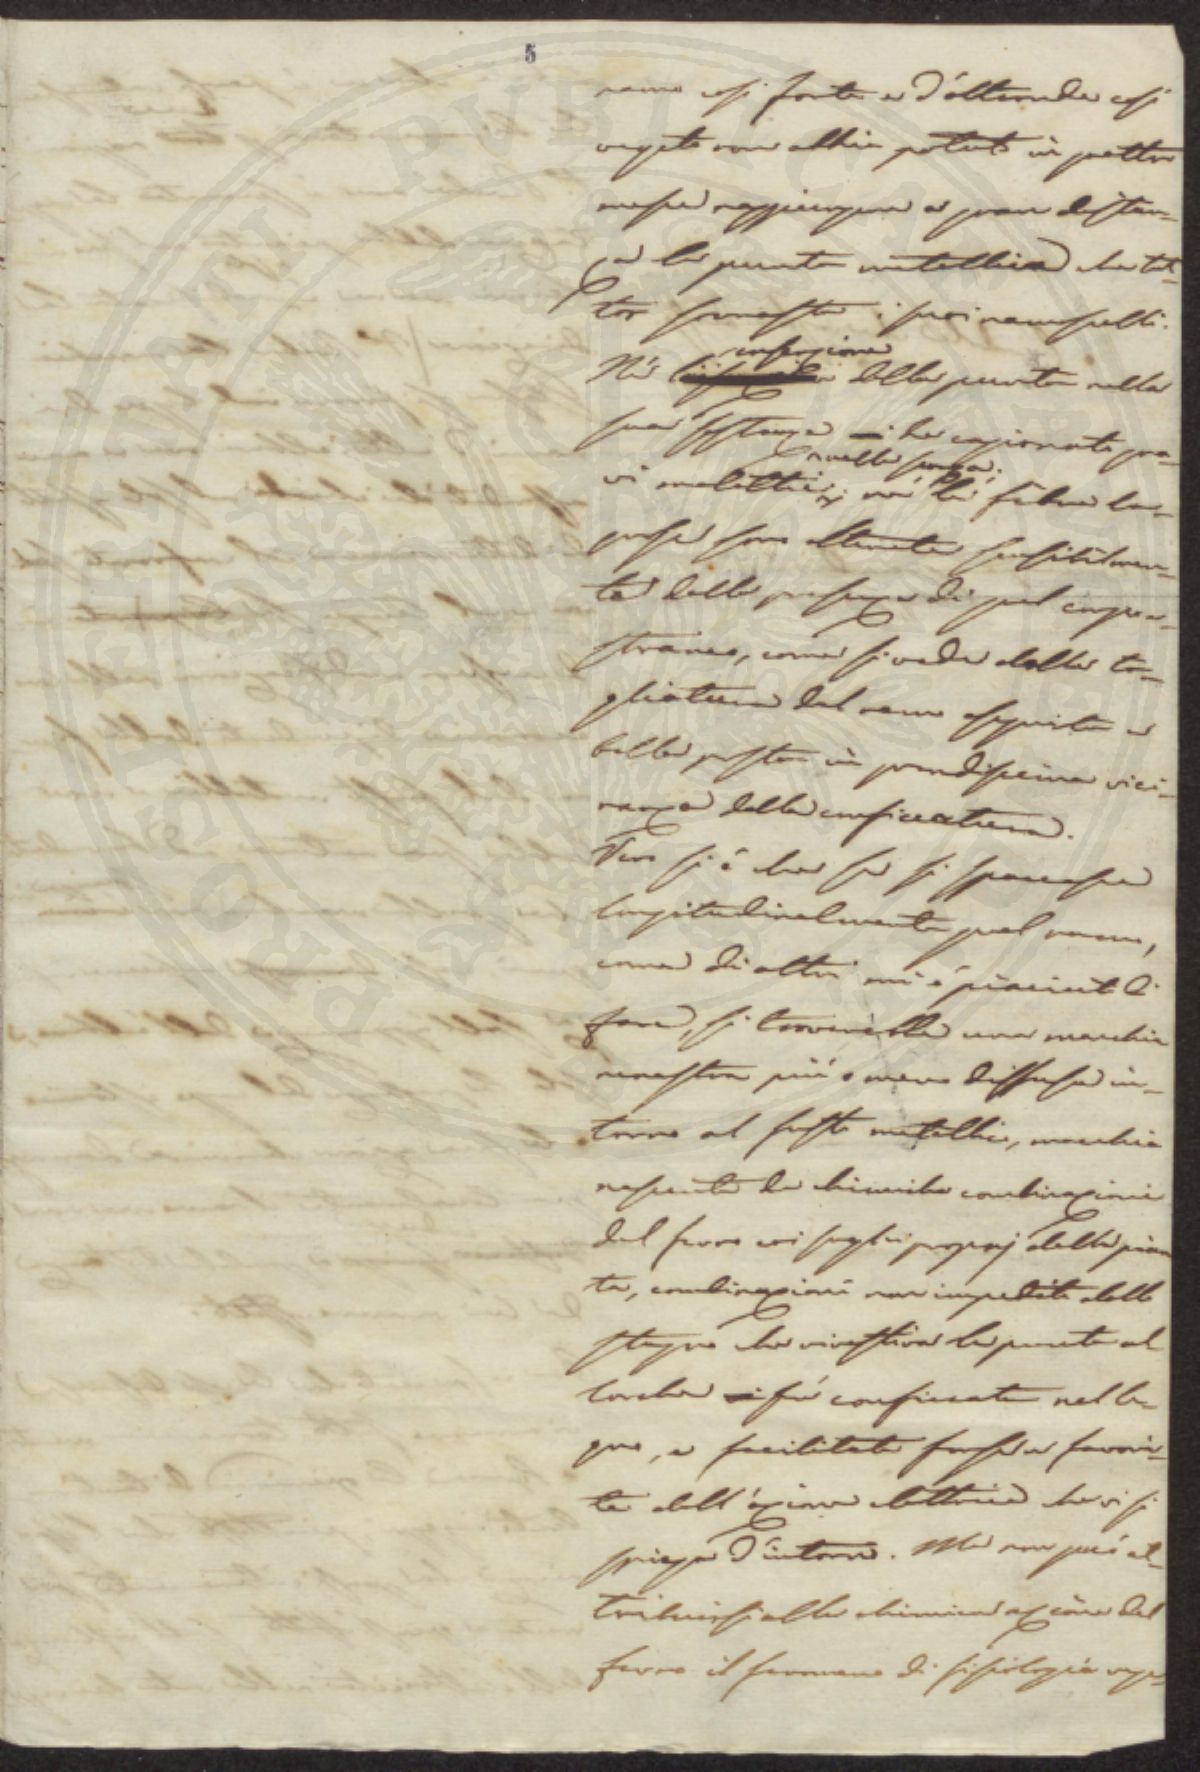 5
ramo così forte e d'altronde così
vegeto non abbia potuto in quattro
mesi raggiungere a gran distan-
za la punta metallica che tut-
tor sovrasta i suoi ramuscelli.
infezione
Nè della punta nella
sua sostanza ha cagionato gra-
vi malattie, nè la fibra le-
gnosa sono alterate sensibilmen-
te dalla presenza di quel corpo e-
straneo, come si vede dalla ta-
gliatura del ramo eseguita a
bella posta in grandissima vici-
nanza della conficcatura.
Vero si è che se si spaccasse
longitudinalmente quel ramo,
come di altri mi è piaciuto di
fare, si troverebbe una macchia
nerastra più o meno diffusa in-
torno al fusto metallico, macchia
nascente da chimiche combinazioni
del ferro coi sughi propri della pian-
ta, combinazioni non impedite dallo
stagno che rivestiva la punta al-
lorchè fu conficcata nel le-
gno, e facilitate forse e favori-
te dall'azione elettrica che vi si
spiega d'intorno. Ma non può at-
tribuirsi alla chimica azione del
ferro il fenomeno di fisiologia vege-